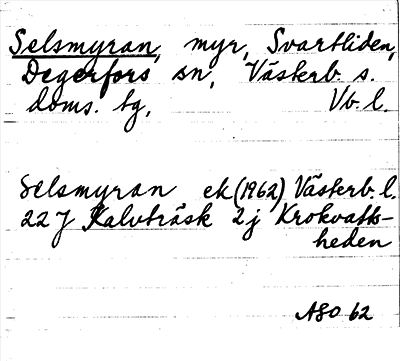 Selsmyran, myr, Svartliden,
Degerfors sn, Västerb. s.
doms. tg, Vb. l.
Selsmyran ek (1962) Västerb. l.
22J Kalvträsk 2j Krokvatts-
heden
ASO 62